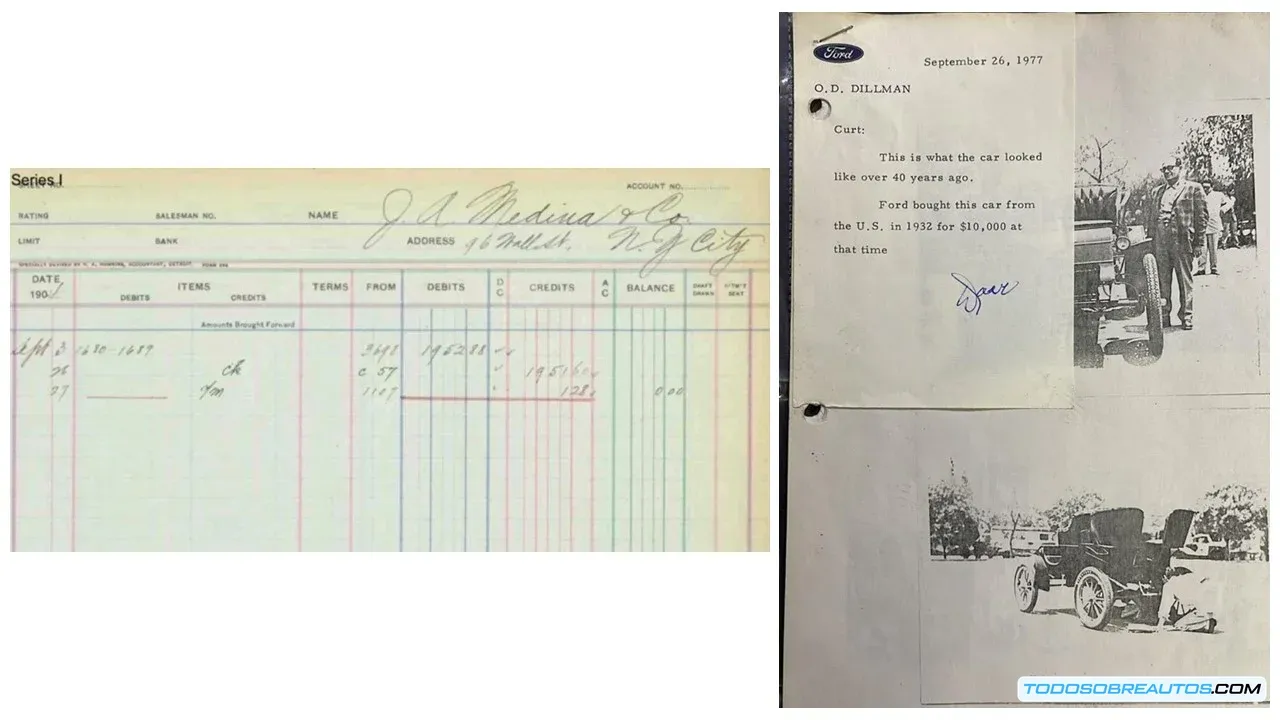 Series I
ACCOUNT NO.
RATING SALESMAN NO. NAME J. A. Medina & Co.
LIMIT BANK ADDRESS 96 Wall St. N. Y. City
DATE ITEMS TERMS FROM DEBITS D C CREDITS A C BALANCE DRAFT DRAWN
190 DEBITS CREDITS
Amounts Brought Forward
Sept 3 1680-1689 3698 1952 88
26 ck c 57 1951 60
27 1107 1 28 0 00
Ford
September 26, 1977
O.D. DILLMAN
Curt:
This is what the car looked
like over 40 years ago.
Ford bought this car from
the U.S. in 1932 for $10,000 at
that time
TODOSOBREAUTOS.COM